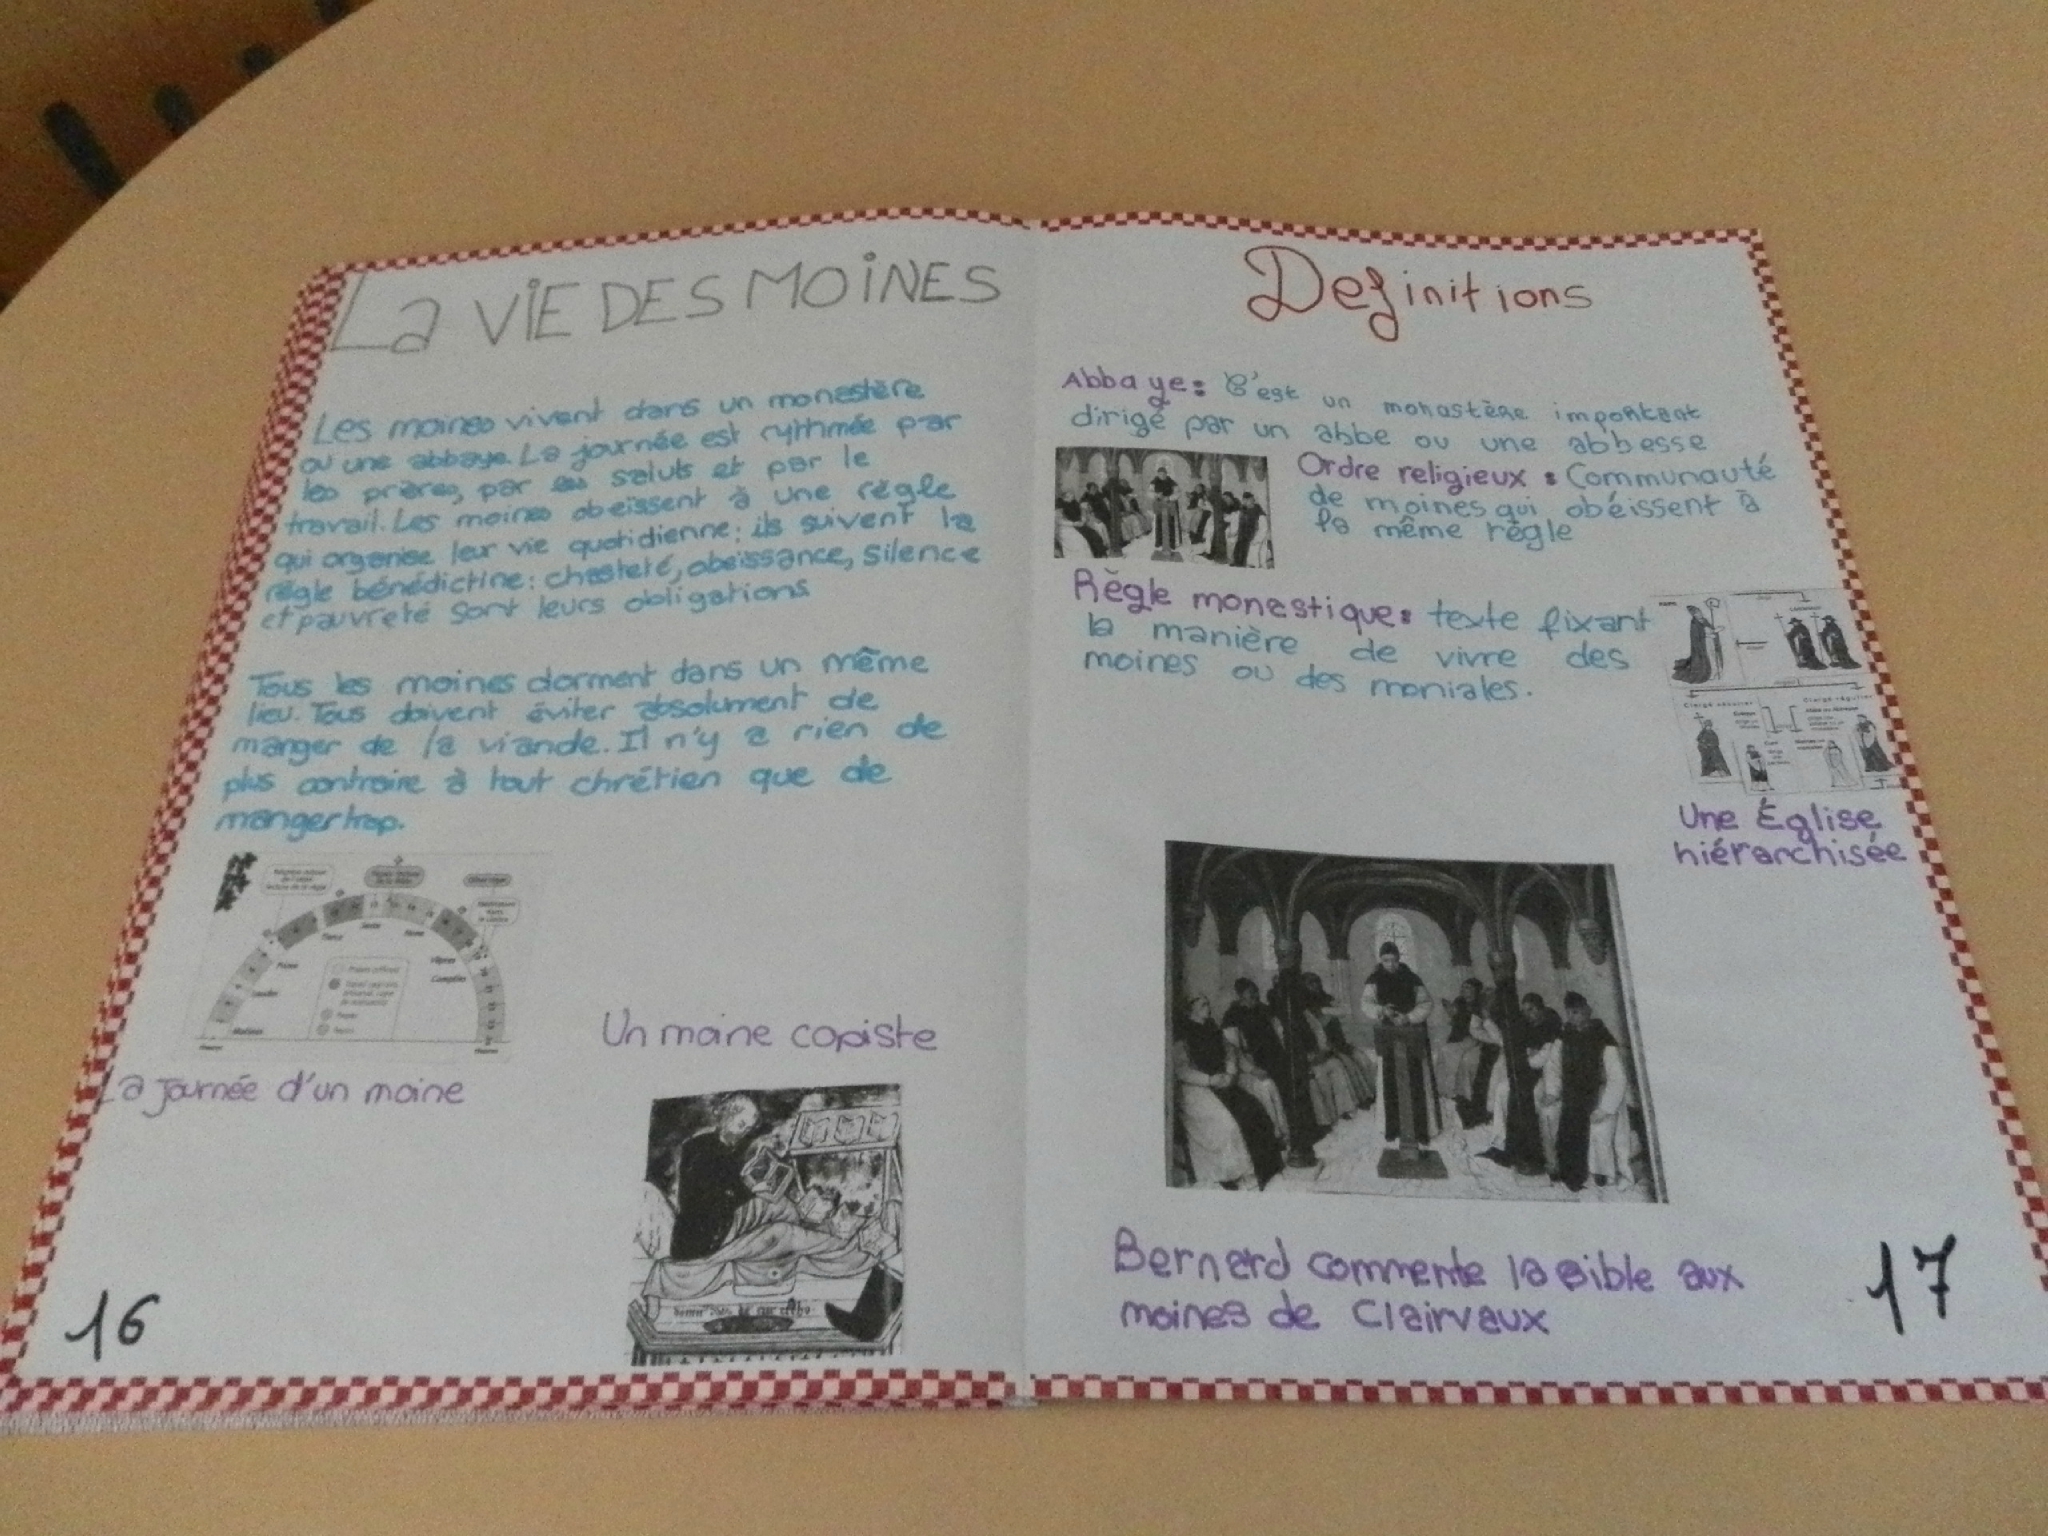 La VIE DES MOINES
Les moines vivent dans un monastère
ou une abbaye. La journée est rythmée par
les prières, par les saluts et par le
travail. Les moines obeissent à une règle
qui organise leur vie quotidienne: ils suivent la
règle bénédictine: chasteté, obeissance, silence
et pauvreté sont leurs obligations
Tous les moines dorment dans un même
lieu. Tous doivent éviter absolument de
manger de la viande. Il n'y a rien de
plus contraire à tout chrétien que de
manger trop.
Prime
Tierce
Sexte
None
Vêpres
Complies
Laudes
Matines
Heures
Heures
La journée d'un moine
Un moine copiste
16
Definitions
Abbaye: C'est un monastère important
dirigé par un abbe ou une abbesse
Ordre religieux: Communauté
de moines qui obéissent à
la même règle
Règle monastique: texte fixant
la manière de vivre des
moines ou des moniales.
Clergé séculier
Clergé régulier
Une Église
hiérarchisée
Bernard commente la Bible aux
moines de Clairvaux
17